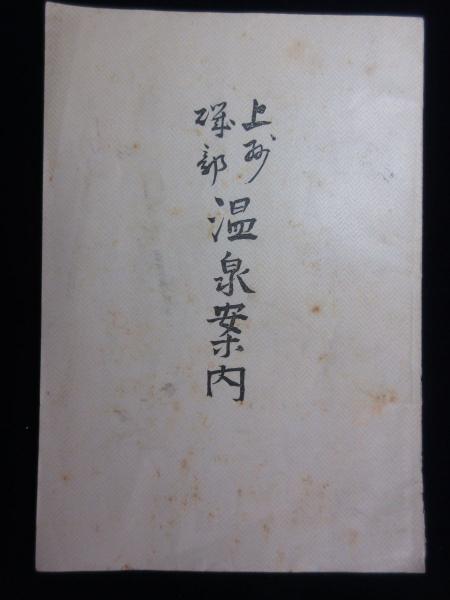 上州
磯部
温泉案内